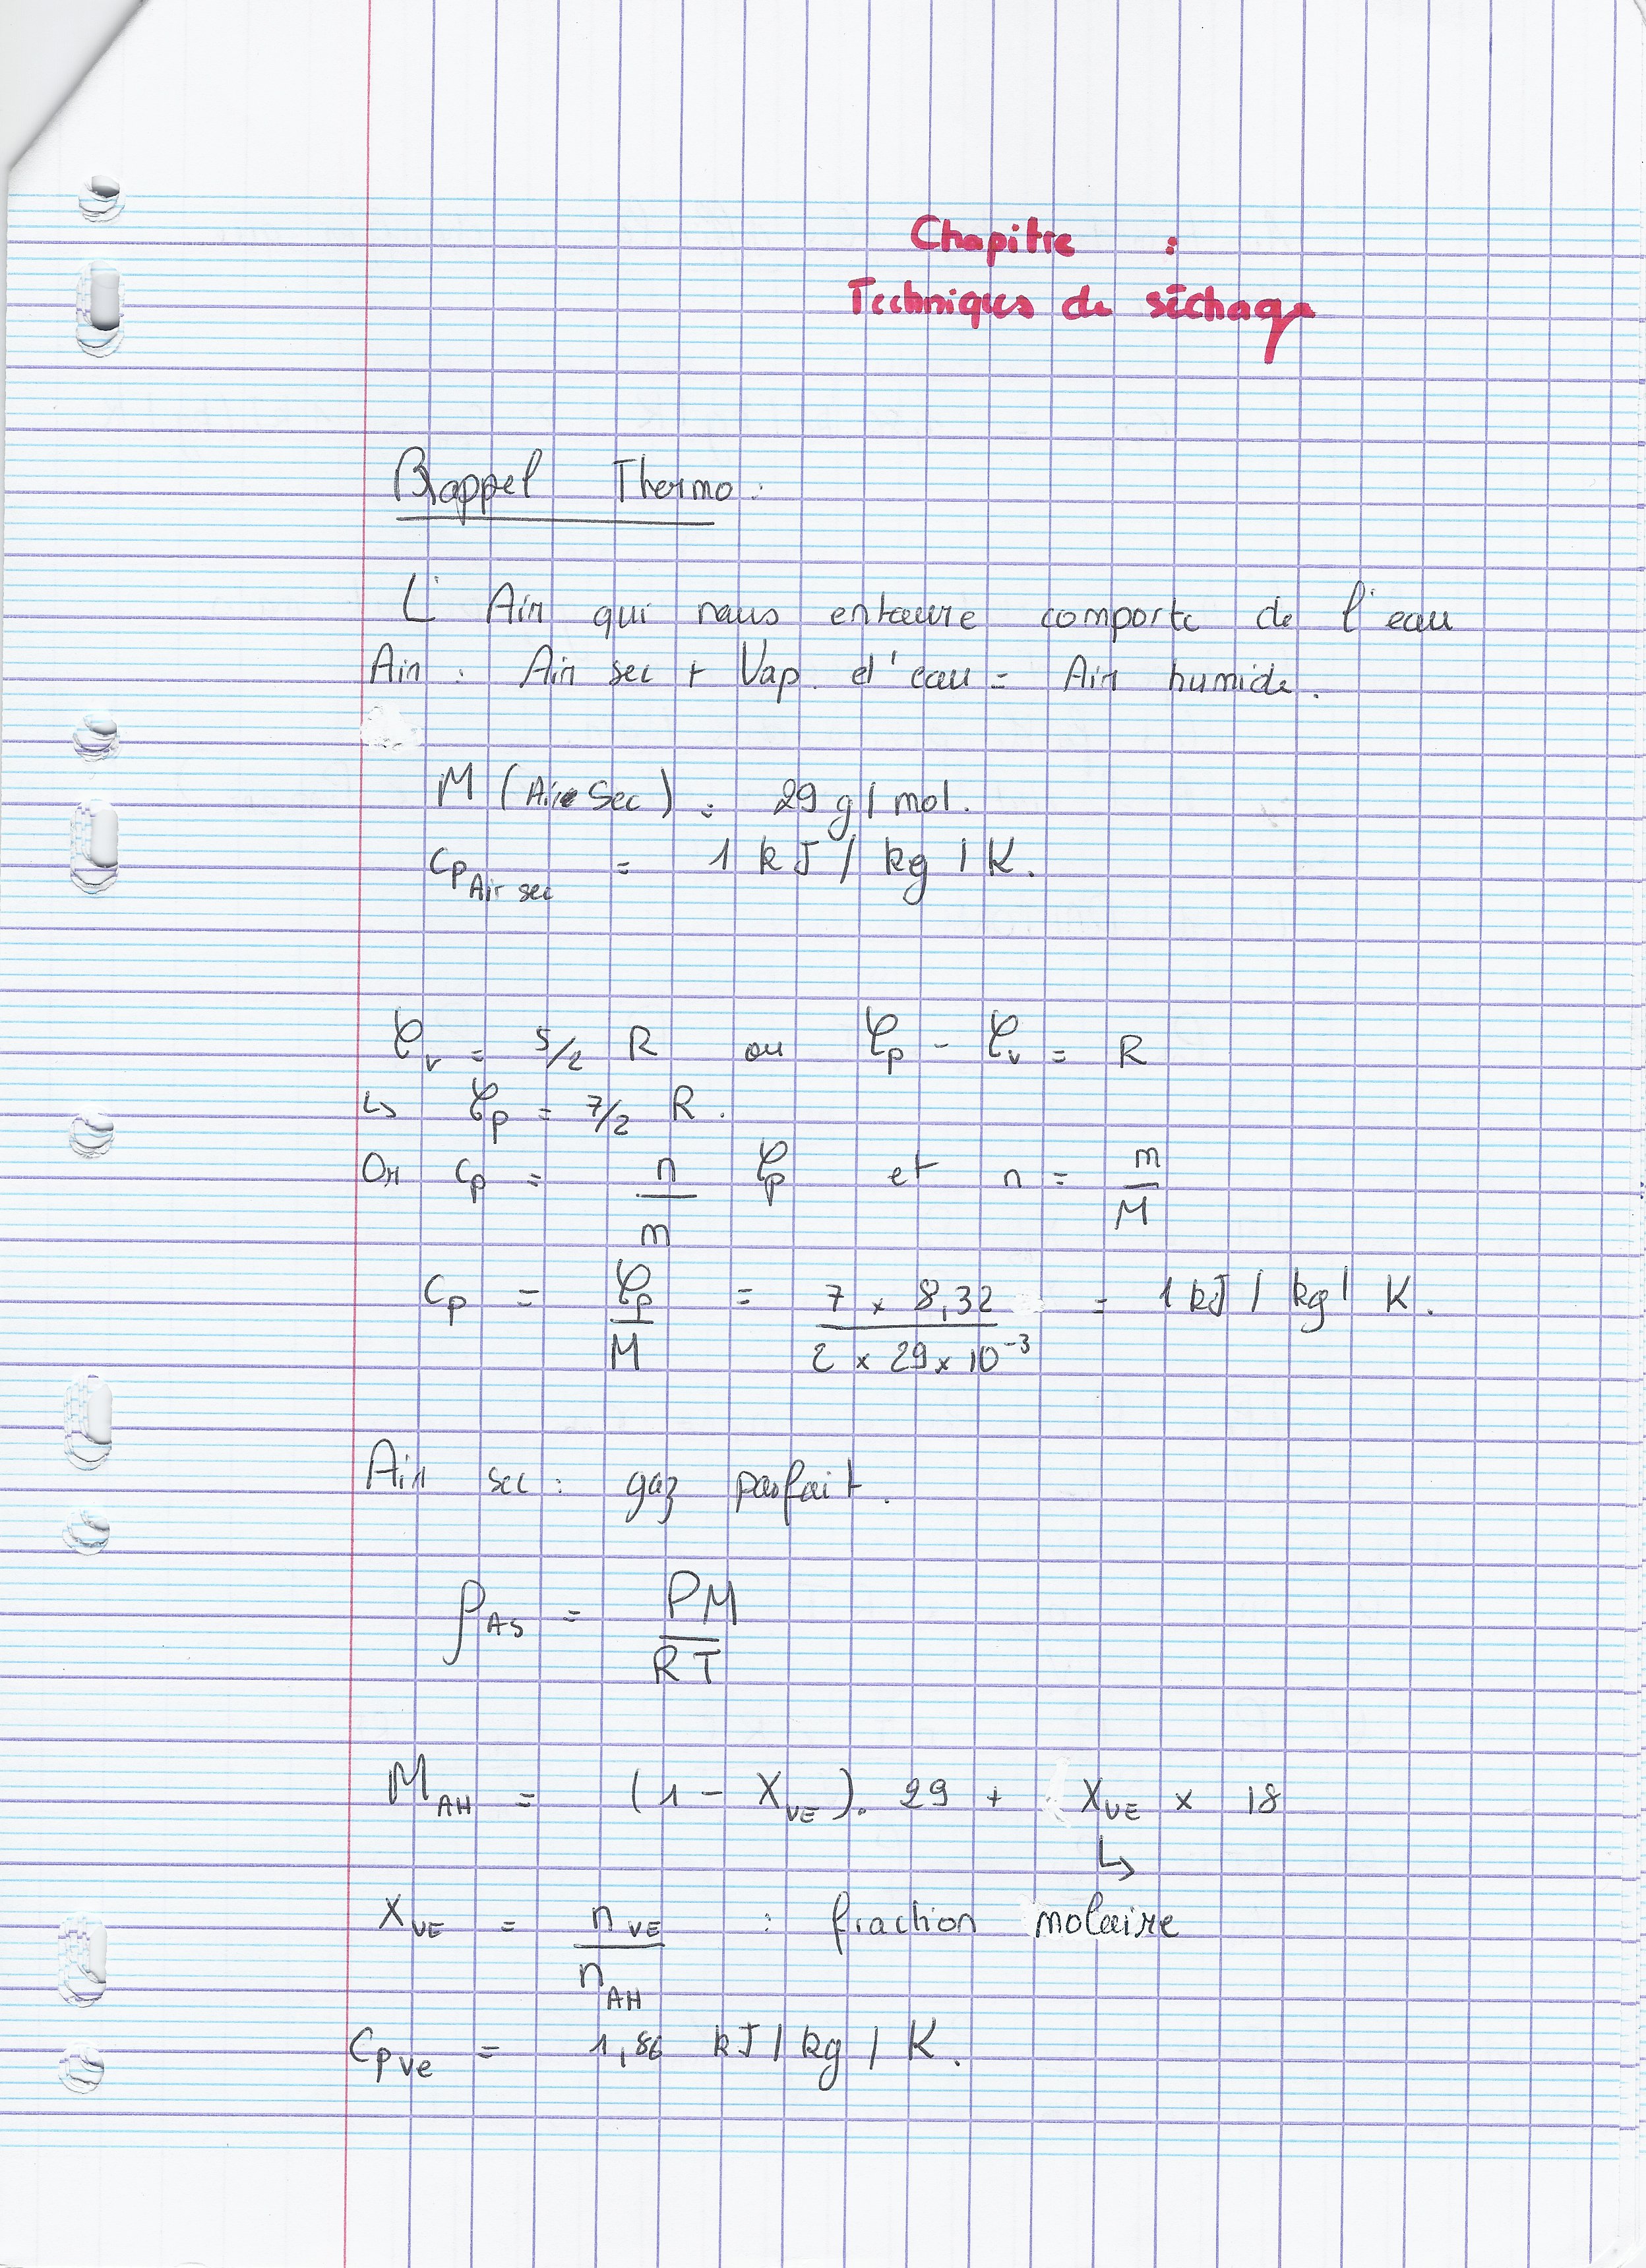 Chapitre :
Techniques de séchage
Rappel Thermo :
L'Air qui nous entoure comporte de l'eau
Air : Air sec + Vap. d'eau = Air humide.
M (Air Sec) = 29 g/mol.
Cp Air sec = 1 kJ / kg / K.
𝒞v = 5/2 R ou 𝒞p - 𝒞v = R
↳ 𝒞p = 7/2 R.
Or cp = n/m 𝒞p et n = m/M
Cp = 𝒞p/M = (7 × 8,32)/(2 × 29 × 10⁻³) = 1 kJ / kg / K.
Air sec : gaz parfait.
ρAS = PM/RT
MAH = (1 - XVE). 29 + XVE × 18
↳
XVE = nVE/nAH : fraction molaire
Cp ve = 1,86 kJ / kg / K.